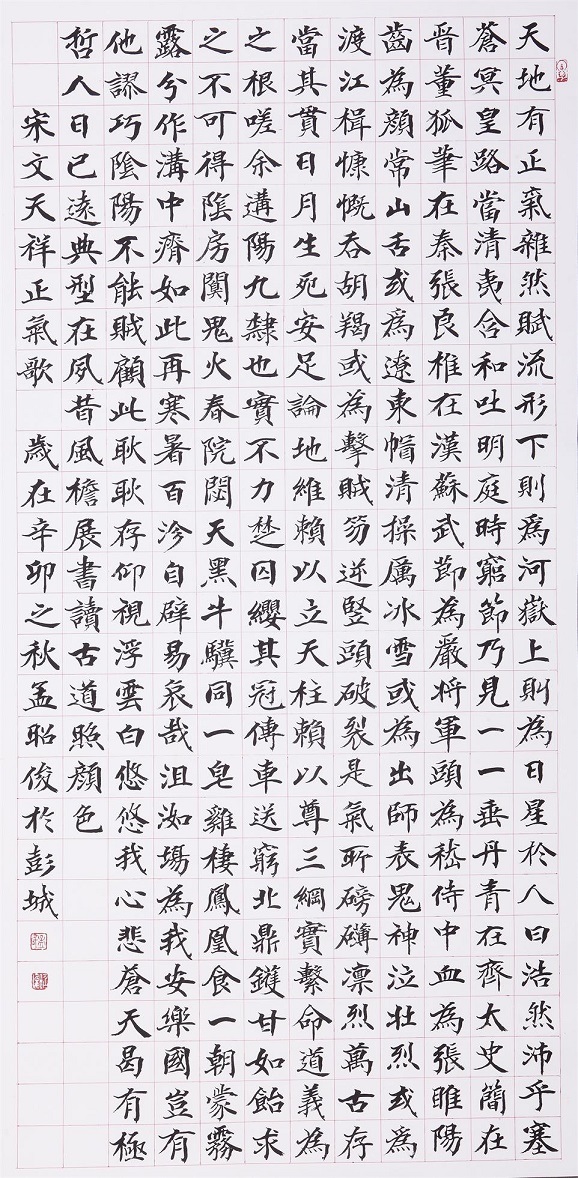 天地有正氣雜然賦流形下則為河嶽上則為日星於人曰浩然沛乎塞
蒼冥皇路當清夷含和吐明庭時窮節乃見一一垂丹青在齊太史簡在
晉董狐筆在秦張良椎在漢蘇武節為嚴將軍頭為嵇侍中血為張睢陽
齒為顏常山舌或為遼東帽清操厲冰雪或為出師表鬼神泣壯烈或為
渡江楫慷慨吞胡羯或為擊賊笏逆豎頭破裂是氣所磅礡凜烈萬古存
當其貫日月生死安足論地維賴以立天柱賴以尊三綱實繫命道義為
之根嗟余遘陽九隸也實不力楚囚纓其冠傳車送窮北鼎鑊甘如飴求
之不可得陰房闃鬼火春院閟天黑牛驥同一皂雞棲鳳凰食一朝蒙霧
露兮作溝中瘠如此再寒暑百沴自辟易哀哉沮洳場為我安樂國豈有
他謬巧陰陽不能賊顧此耿耿存仰視浮雲白悠悠我心悲蒼天曷有極
哲人日已遠典型在夙昔風檐展書讀古道照顏色
宋文天祥正氣歌 歲在辛卯之秋孟昭俊於彭城